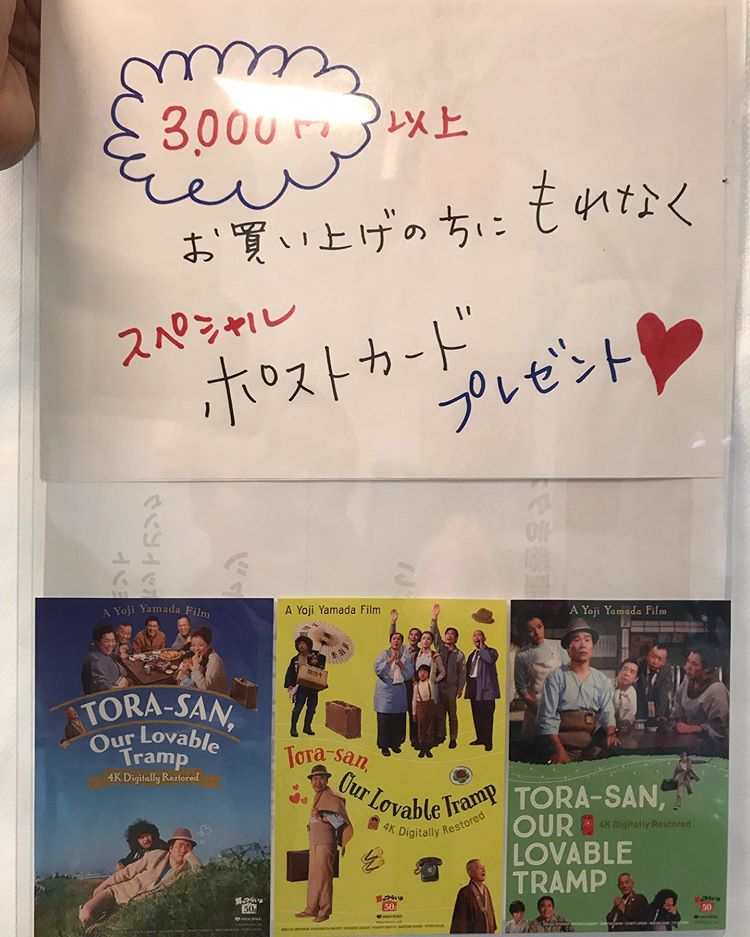 3,000円 以上
お買い上げの方に もれなく
スペシャル
ポストカード
プレゼント
A Yoji Yamada Film
TORA-SAN,
Our Lovable
Tramp
4K Digitally Restored
A Yoji Yamada Film
Tora-san,
Our Lovable Tramp
4K Digitally Restored
A Yoji Yamada Film
TORA-SAN,
OUR 4K Digitally Restored
LOVABLE
TRAMP